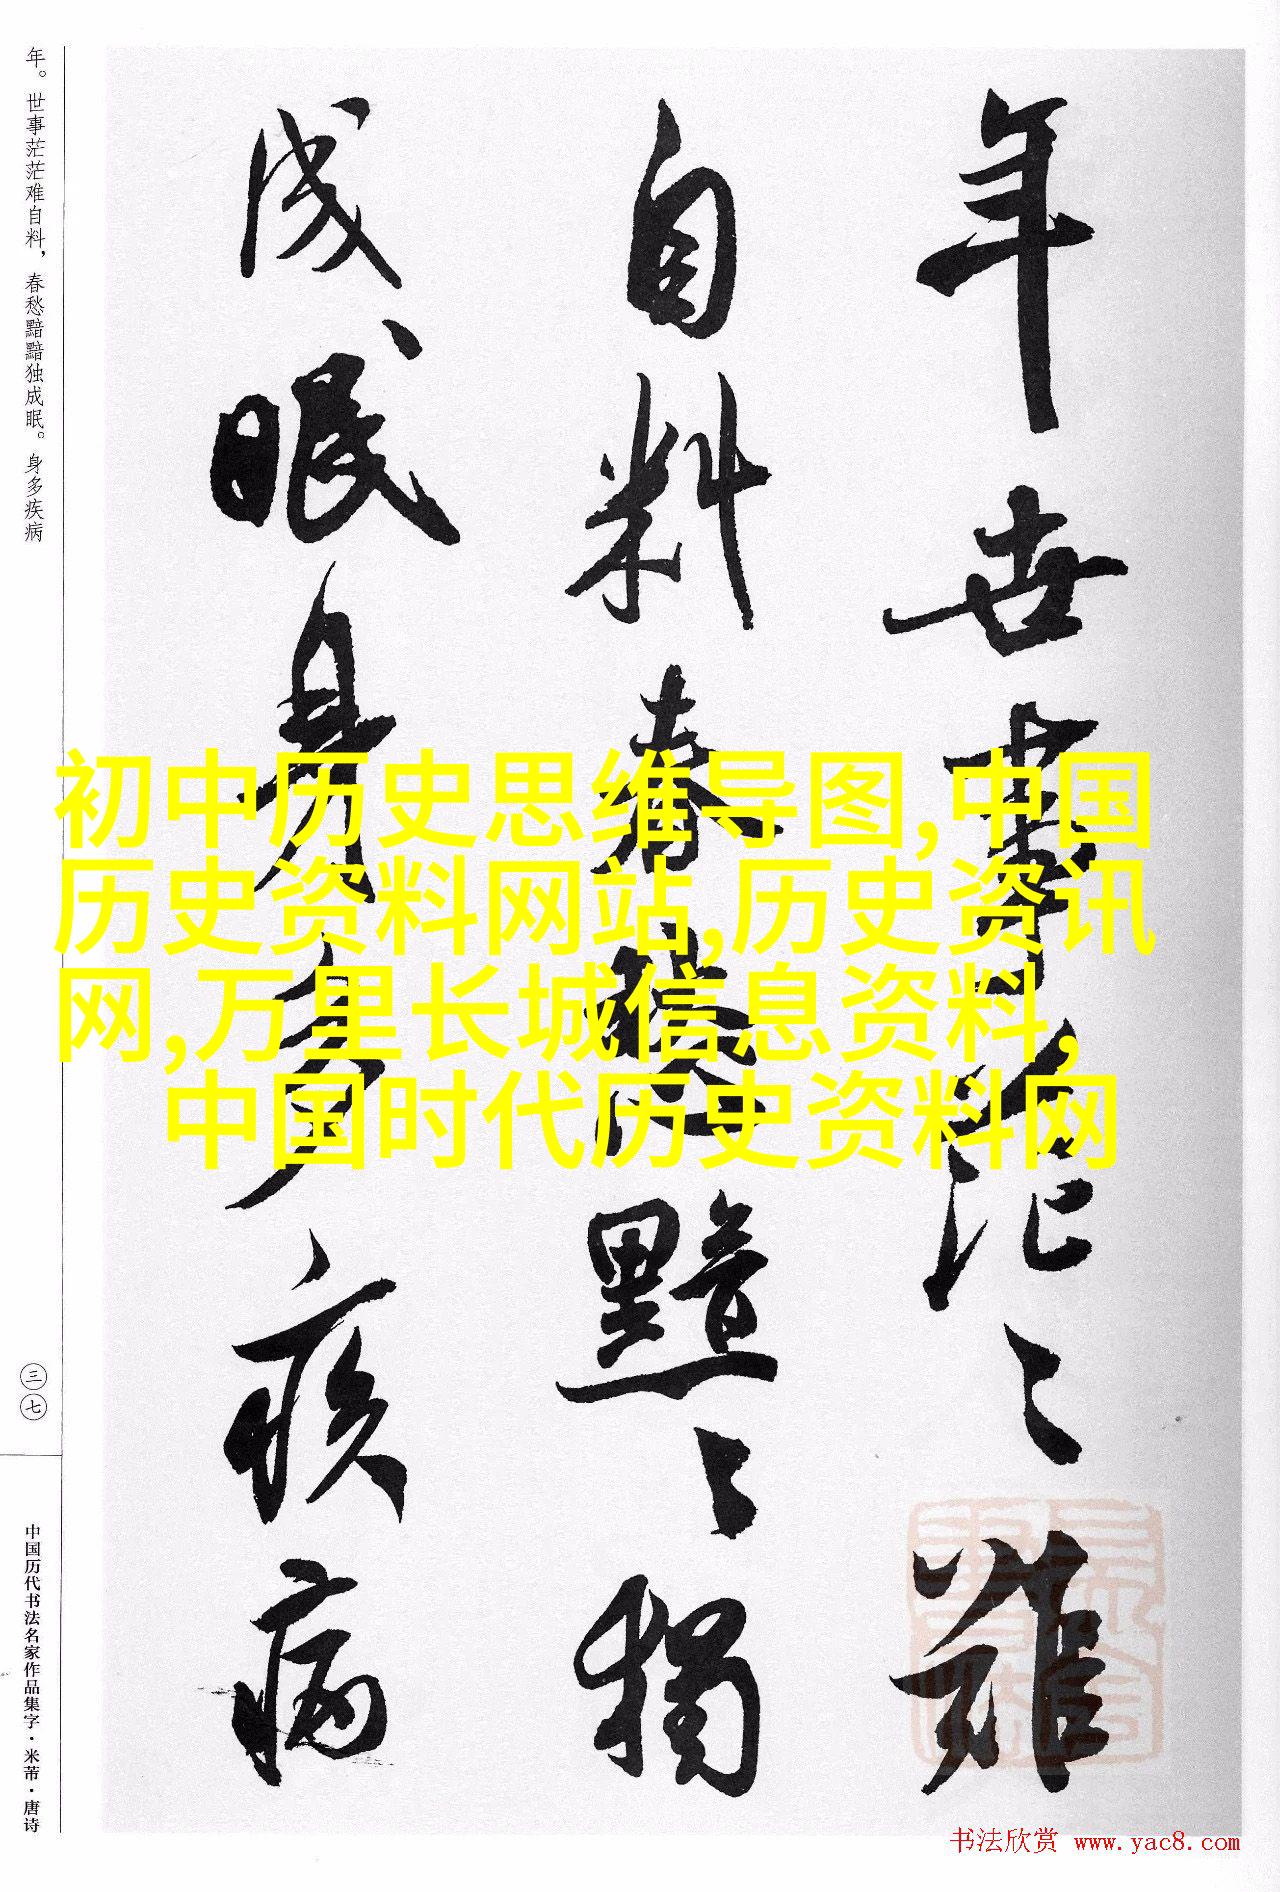 年世事茫〻难
自料春愁黯〻獨
成眠身多疾病
年。世事茫茫难自料，春愁黯黯独成眠。身多疾病
三七
中国历代书法名家作品集字·米芾·唐诗
初中历史思维导图,中国
历史资料网站,历史资讯
网,万里长城信息资料,
中国时代历史资料网
书法欣赏 www.yac8.com